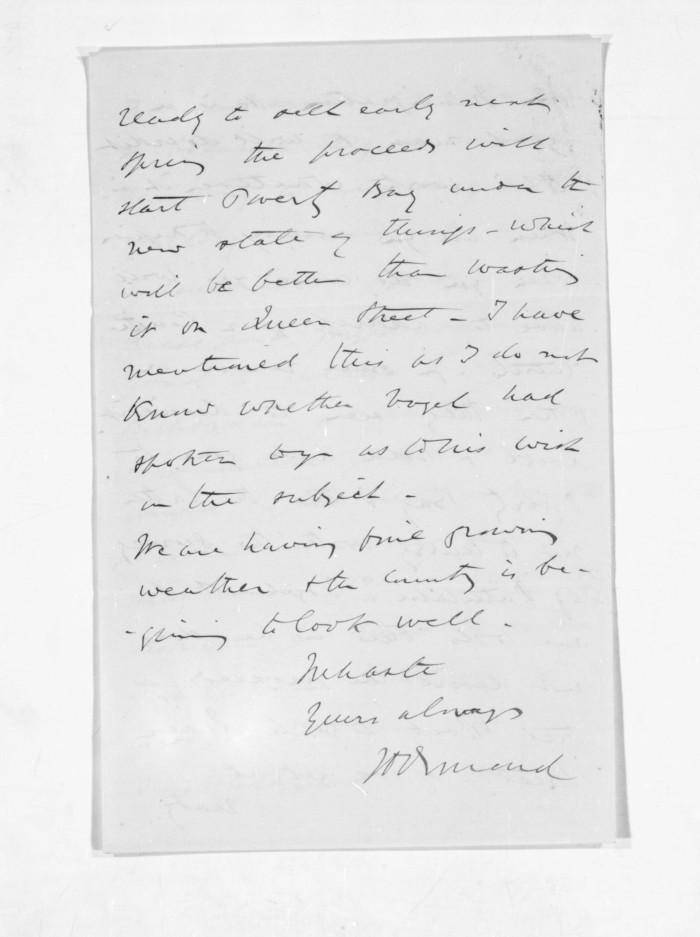 ready to sell early next
spring the proceeds will
start Poverty Bay under the
new state of things - which
will be better than wasting
it on Queen Street - I have
mentioned this as I do not
know whether Vogel had
spoken to you as to his wish
on the subject -
We are having fine growing
weather & the country is be-
-ginning to look well -
In haste
Yours always
JD Ormond